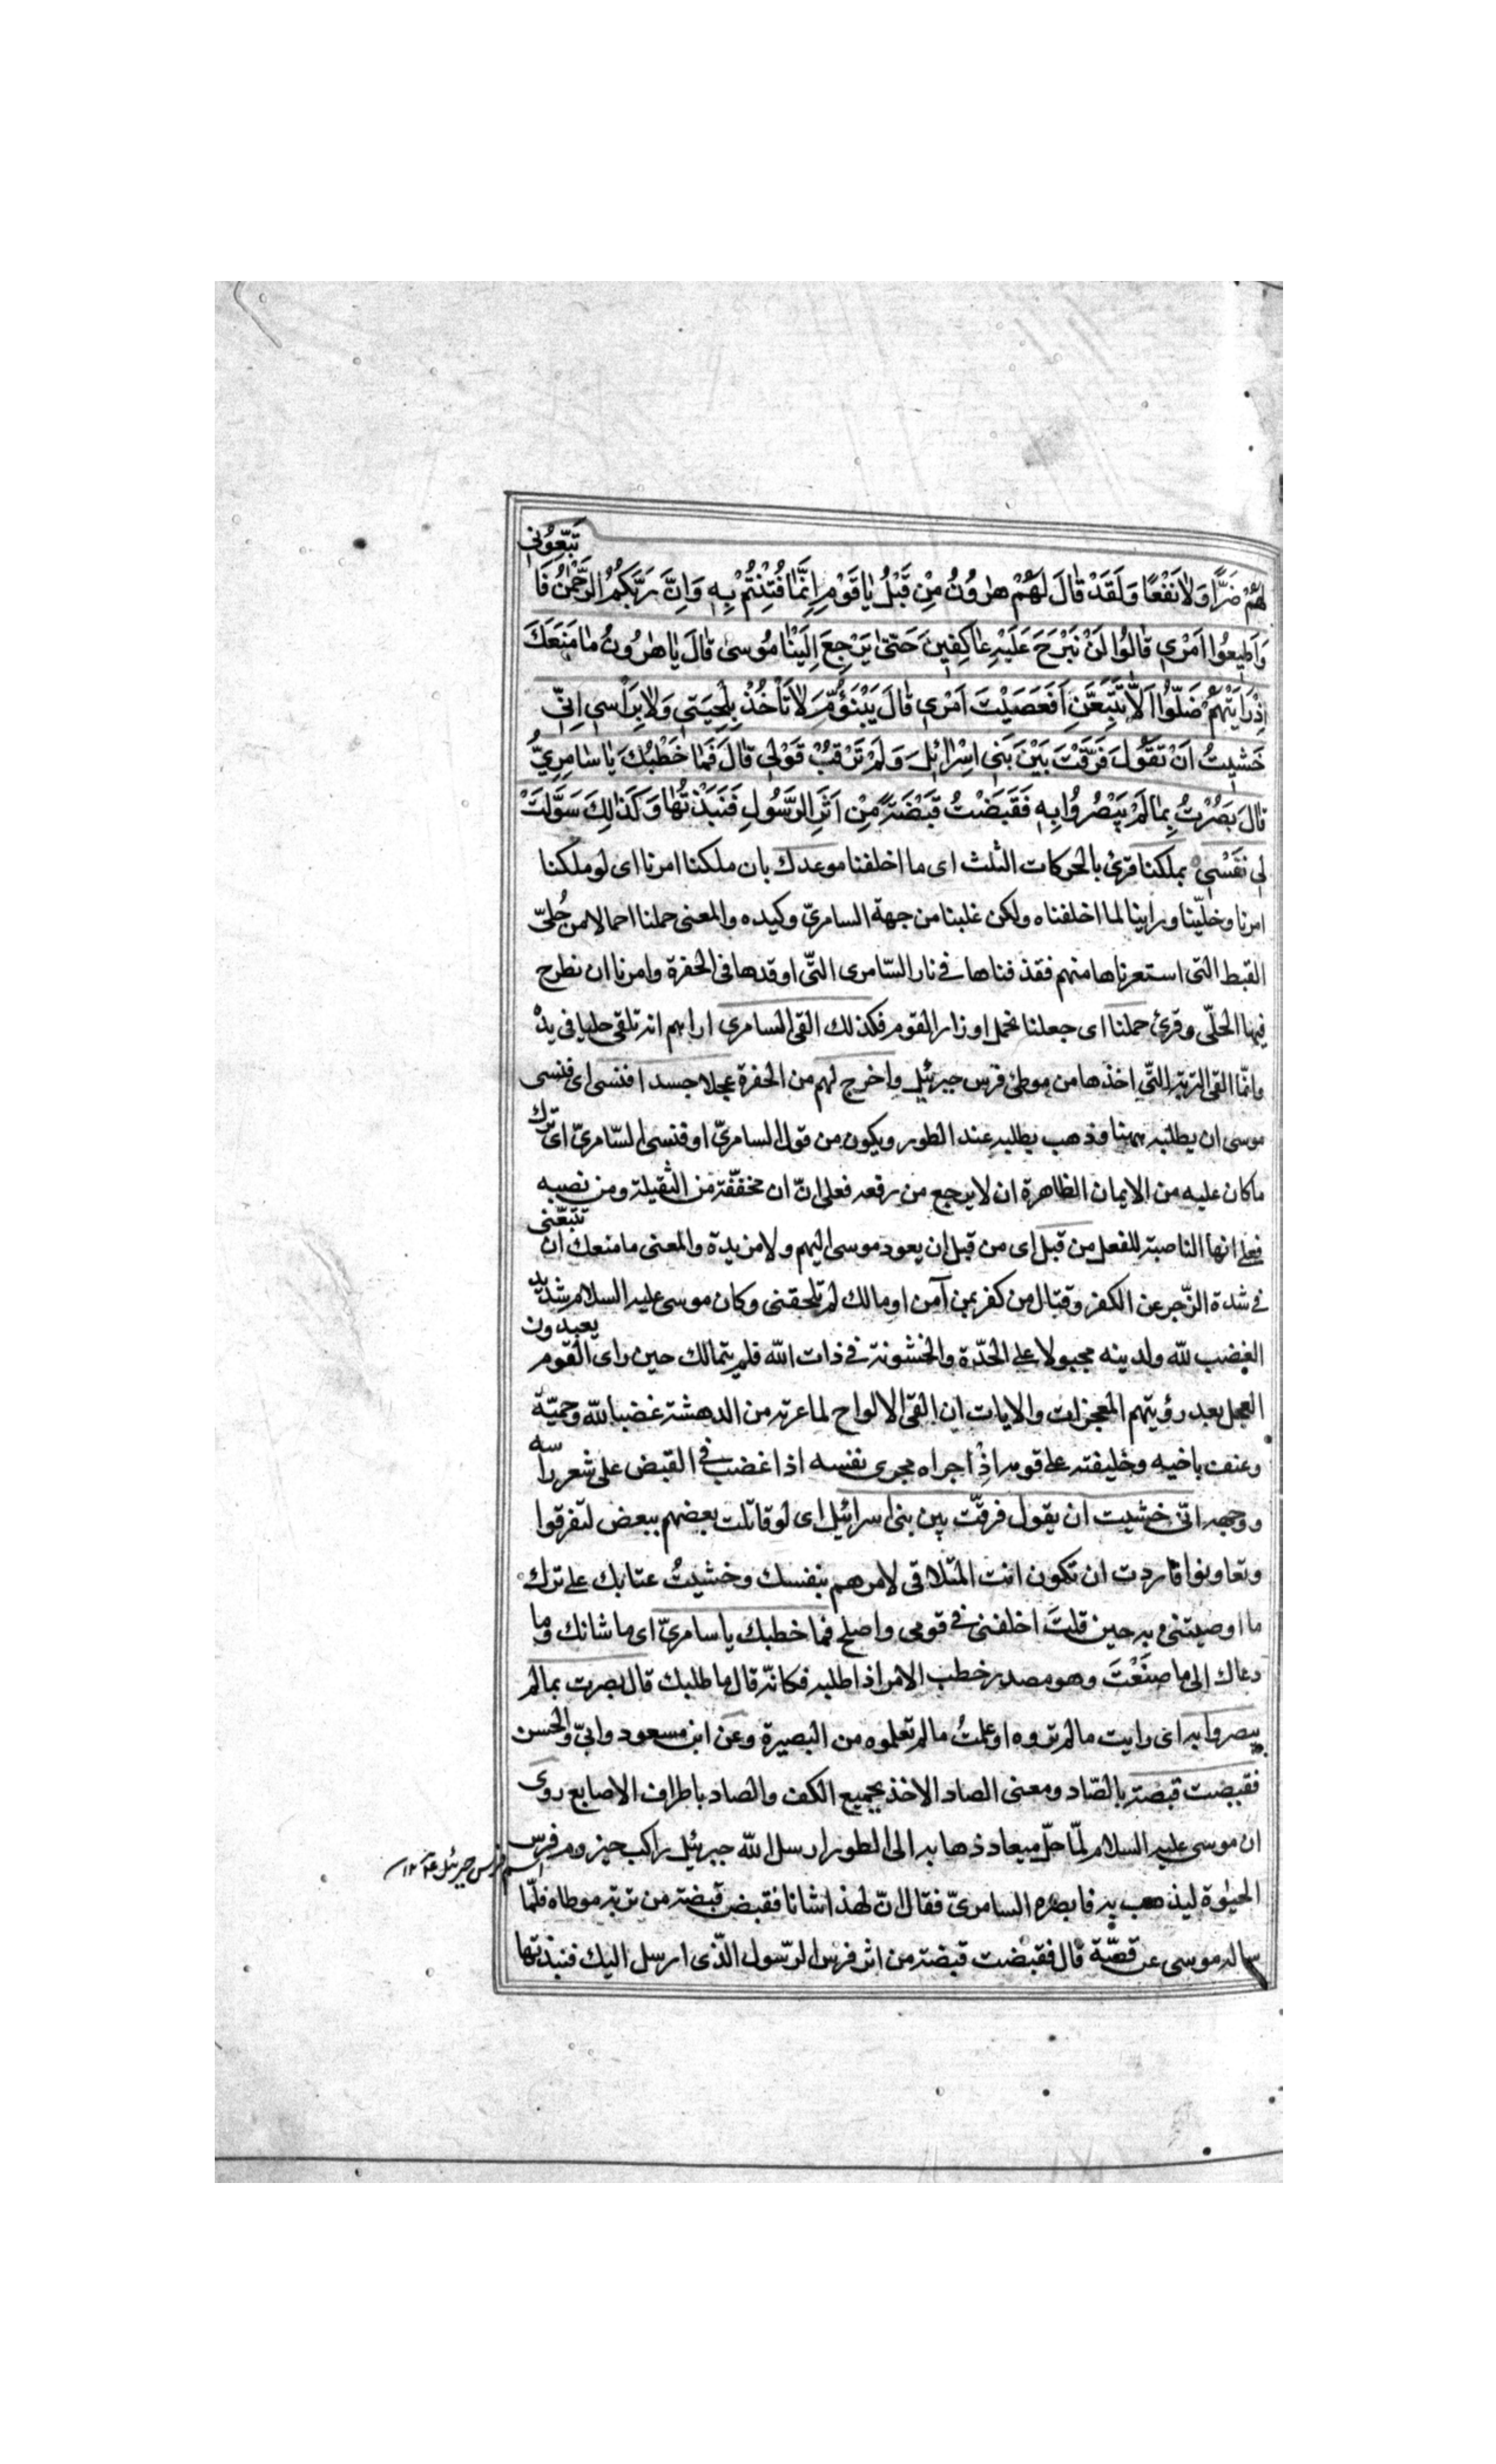 لَهُمْ ضَرًّا وَلَا نَفْعًا وَلَقَدْ قَالَ لَهُمْ هٰرُونُ مِنْ قَبْلُ يَا قَوْمِ اِنَّمَا فُتِنْتُمْ بِهٖ وَاِنَّ رَبَّكُمُ الرَّحْمٰنُ فَا تَّبِعُونِي
وَاَطِيعُوا اَمْرِي قَالُوا لَنْ نَبْرَحَ عَلَيْهِ عَاكِفِينَ حَتّىٰ يَرْجِعَ اِلَيْنَا مُوسىٰ قَالَ يَا هٰرُونُ مَا مَنَعَكَ
اِذْ رَاَيْتَهُمْ ضَلُّوا اَلَّا تَتَّبِعَنِ اَفَعَصَيْتَ اَمْرِي قَالَ يَبْنَؤُمَّ لَا تَأْخُذْ بِلِحْيَتِي وَلَا بِرَاْسِي اِنِّي
خَشِيتُ اَنْ تَقُولَ فَرَّقْتَ بَيْنَ بَنِي اِسْرَائِلَ وَلَمْ تَرْقُبْ قَوْلِي قَالَ فَمَا خَطْبُكَ يَا سَامِرِيُّ
قَالَ بَصُرْتُ بِمَا لَمْ يَبْصُرُوا بِهٖ فَقَبَضْتُ قَبْضَةً مِنْ اَثَرِ الرَّسُولِ فَنَبَذْتُهَا وَكَذٰلِكَ سَوَّلَتْ
لِي نَفْسِي ه بملكنا قرئ بالحركات الثلث اى ما اخلفنا موعدك بان ملكنا امرنا اى لو ملكنا
امرنا وخلّينا وراينا لما اخلفناه ولكن غلبنا من جهة السامريّ وكيده والمعنى حملنا احمالا من حُليّ
القبط التى استعرناها منهم فقذفناها فى نار السّامرى التّى اوقدها فى الحفرة وامرنا ان نطرح
فيها الحلّى وقرئ حملنا اى جعلنا نحمل اوزار القوم فكذلك القى السامرى اراهم انه تلقى حليا فى يده
وانّما القى التربة التّى اخذها من موطئ فرس جبرئيل واخرج لهم من الحفرة عجلا جسدا فنسى اى فنسى
موسى ان يطلبه ههنا وذهب يطلبه عند الطور ويكون من قول السامريّ او فنسى السّامريّ اى ترك
ما كان عليه من الايمان الظاهرة ان لا يرجع من رفعه فعلى انّ ان مخفّفة من الثقيلة ومن نصبه
فعلى انها الناصبة للفعل من قبل اى من قبل ان يعود موسى اليهم ولا مزيدة والمعنى ما منعك ان تتبّعنى
فى شدة الزّجر عن الكفر وقتال من كفر بمن آمن او مالك لم تلحقنى وكان موسى عليه السلام شديد
الغضب للّه ولدينه مجبولا على الحدّة والخشونة فى ذات اللّه فلم يتمالك حين راى القوم يعبدون
العجل بعد رؤيتهم المعجزات والايات ان القى الالواح لما عرته من الدهشة غضبا للّه وحميّة
وعنف باخيه وخليفته على قومه اذ اجراه مجرى نفسه اذا غضب فى القبض على شعر راسه
ووجهه انّى خشيت ان يقول فرقّت بين بنى اسرائيل اى لو قاتلت بعضهم ببعض لتفرقوا
وتعاونوا فاردت ان تكون انت المتلاقى لامرهم بنفسك وخشيتُ عتابك على ترك
ما اوصيتنى به حين قلتَ اخلفنى فى قومى واصلح فما خطبك يا سامريّ اى ما شانك وما
دعاك الى ما صنَعْتَ وهو مصدر خطب الامر اذا طلبه فكانّه قال ما طلبك قال بصرت بما لم
يبصروا به اى رايت ما لم تروه او علمتُ ما لم تعلموه من البصيرة وعن ابن مسعود وابيّ والحسن
فقبصت قبصة بالصّاد ومعنى الضاد الاخذ بجميع الكف والصاد باطراف الاصابع روى
ان موسى عليه السلام لمّا حلّ ميعاد ذهابه الى الطور ارسل اللّه جبرئيل راكب حيزوم فرس
اسم فرس جبرئيل
الحيٰوة ليذهب به فابصره السامريّ فقال انّ لهذا شانا فقبض قبضة من تربة موطاه فلمّا
ساله موسى عن قصّة قال فقبضت قبضة من اثر فرس الرّسول الّذى ارسل اليك فنبذتها